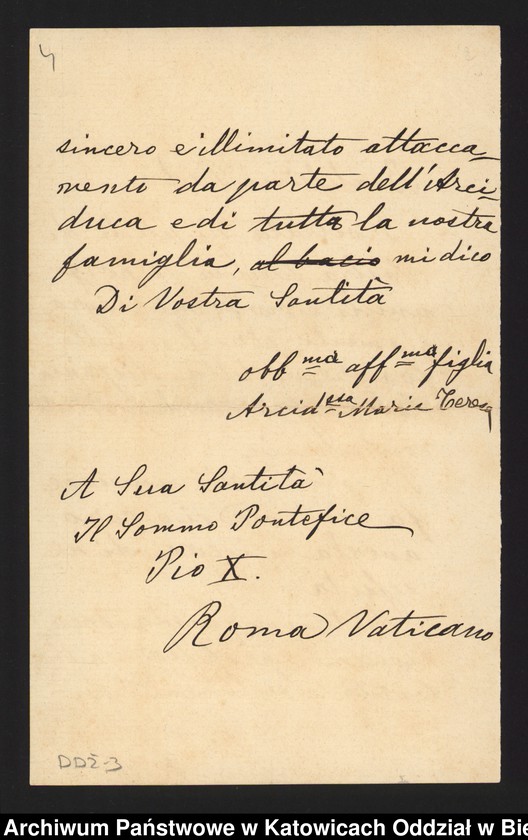 4
sincero e illimitato attacca-
mento da parte dell'Arci-
duca e di tutta la nostra
famiglia, al bacio mi dico
Di Vostra Santità
obb ma aff ma figlia
Arcid ssa Maria Teresa
A Sua Santità
Il Sommo Pontefice
Pio X.
Roma Vaticano
DDŻ-3
Archiwum Państwowe w Katowicach Oddział w Bie